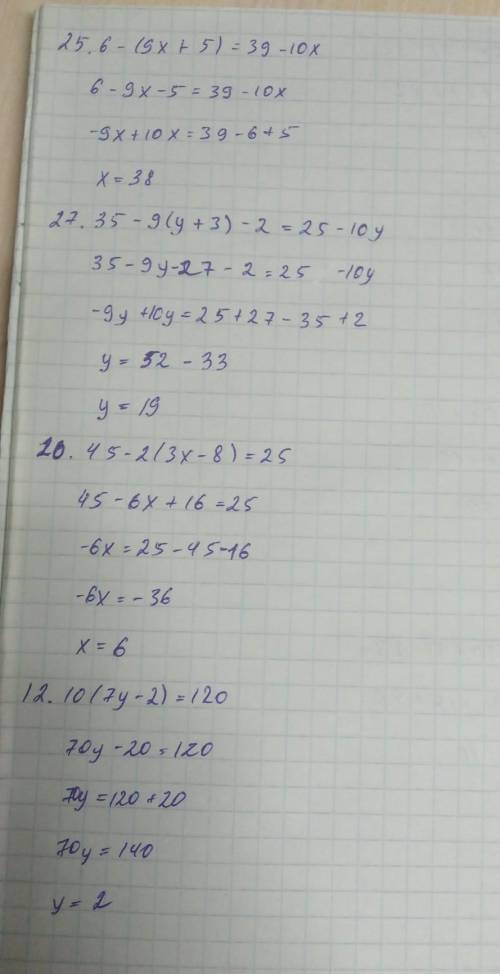 25. 6 - (9x + 5) = 39 - 10x
6 - 9x - 5 = 39 - 10x
-9x + 10x = 39 - 6 + 5
x = 38
27. 35 - 9(y + 3) - 2 = 25 - 10y
35 - 9y - 27 - 2 = 25 - 10y
-9y + 10y = 25 + 27 - 35 + 2
y = 52 - 33
y = 19
20. 45 - 2(3x - 8) = 25
45 - 6x + 16 = 25
-6x = 25 - 45 - 16
-6x = - 36
x = 6
12. 10(7y - 2) = 120
70y - 20 = 120
70y = 120 + 20
70y = 140
y = 2